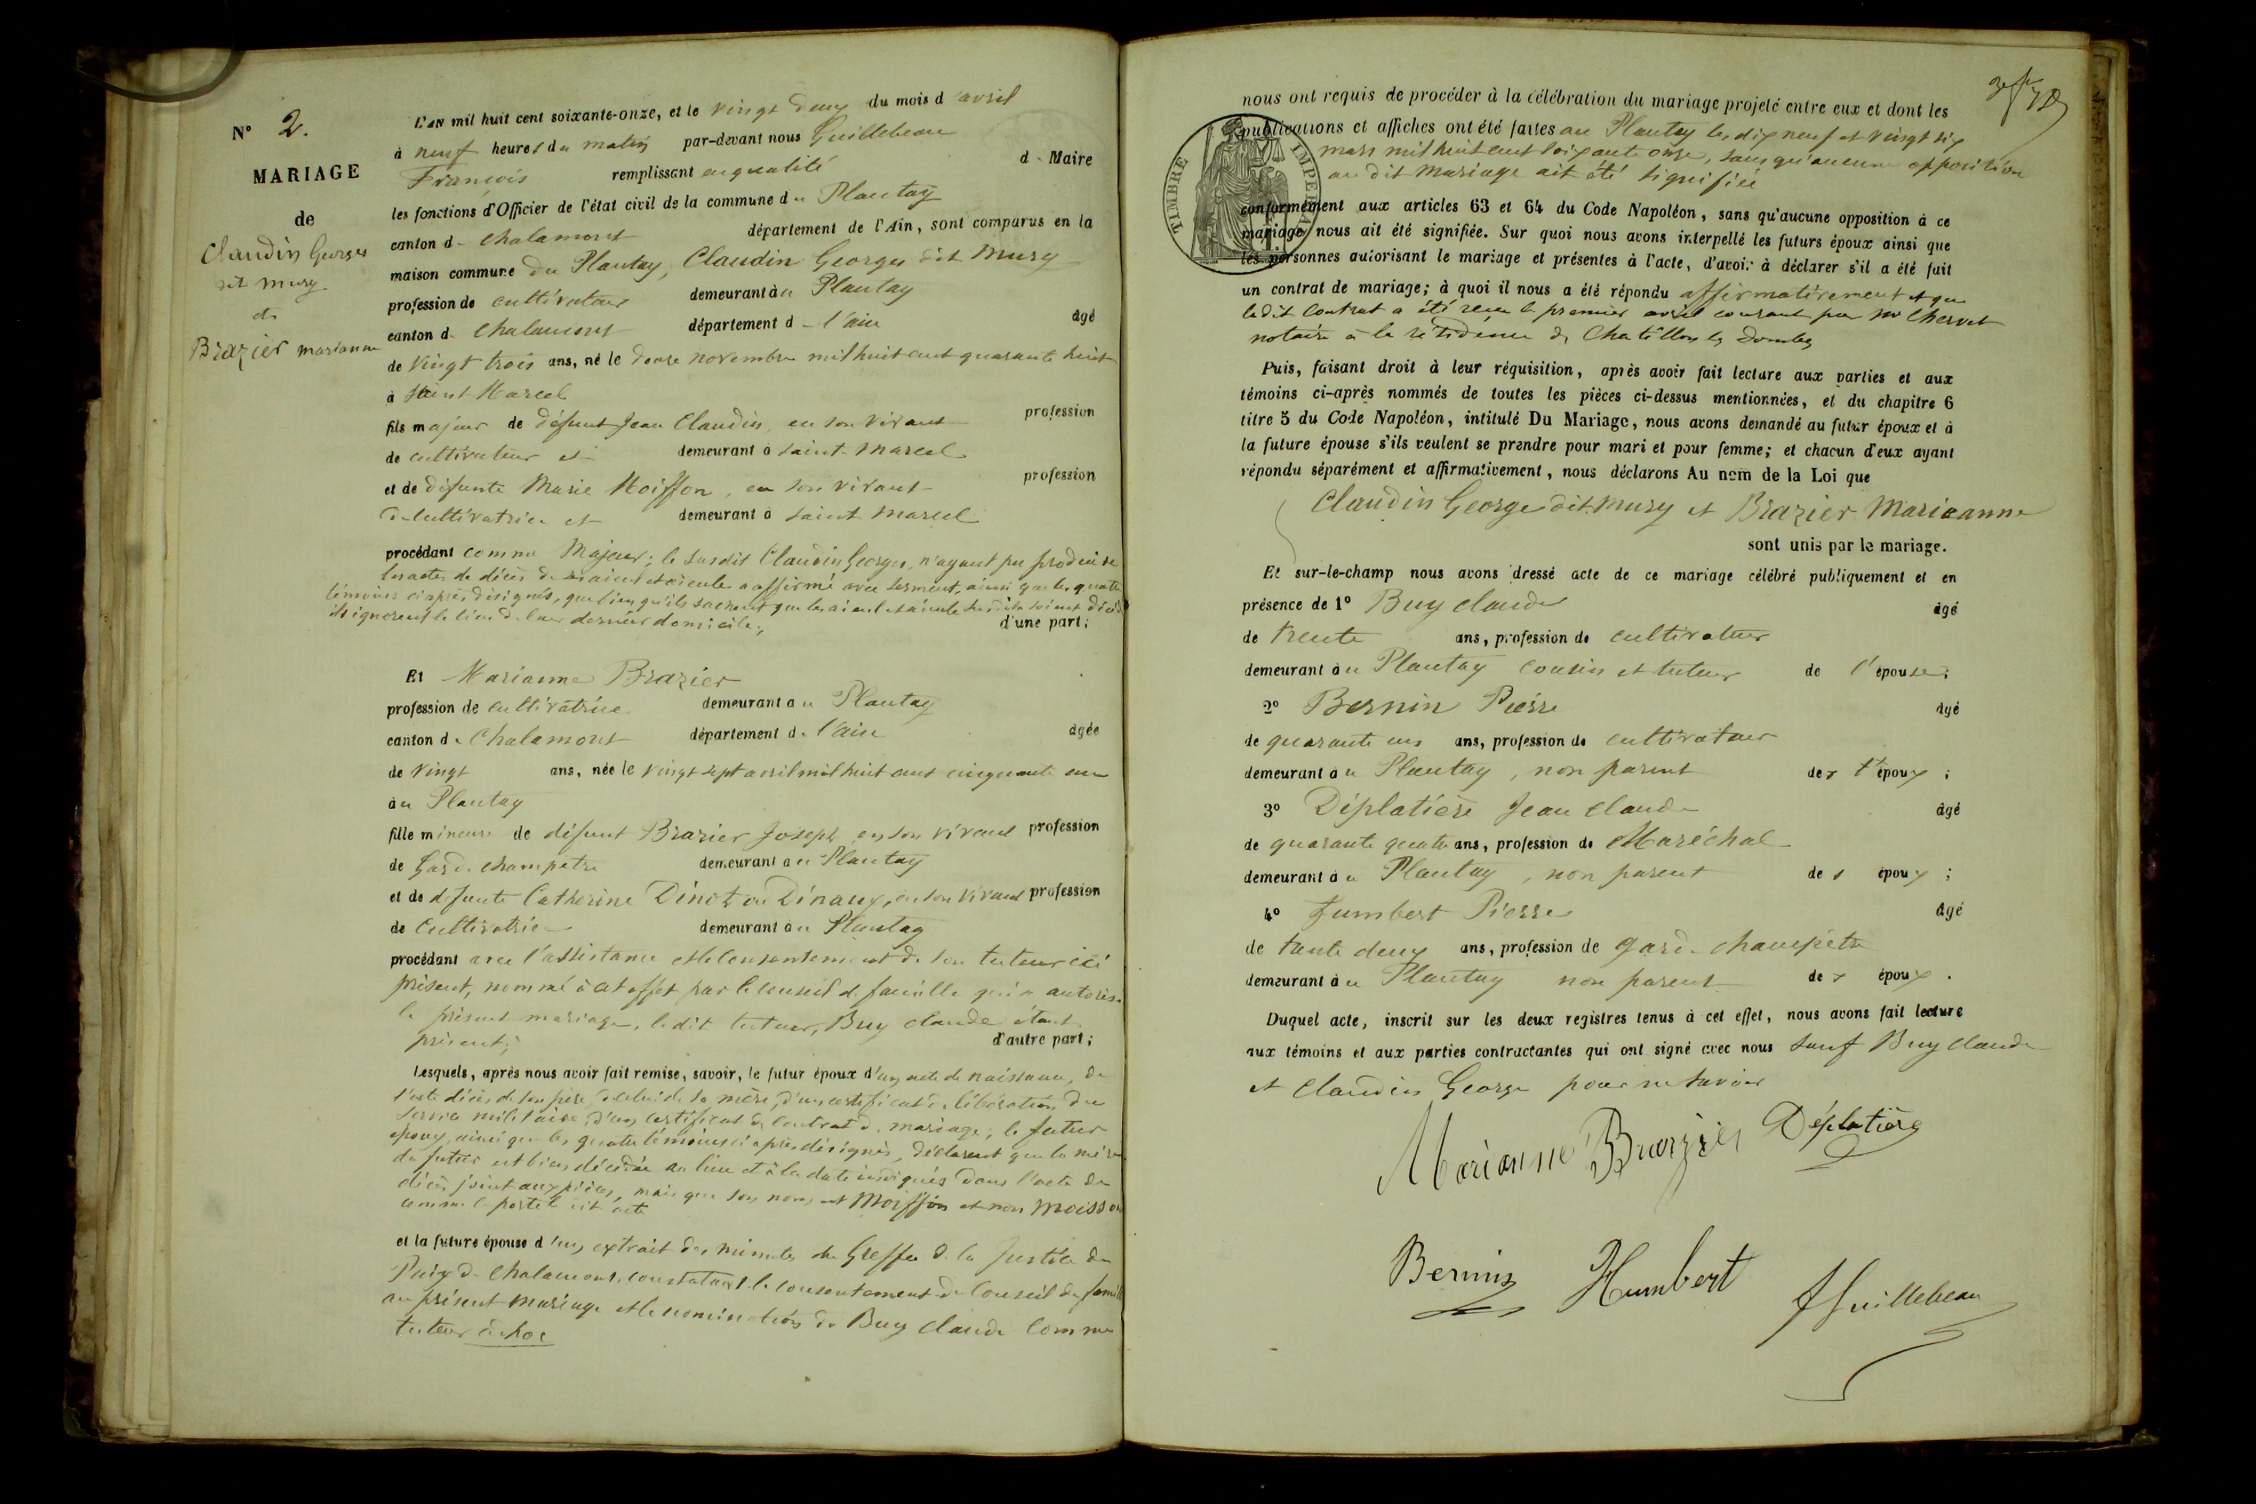 N° 2.
MARIAGE
de
Claudin Georges
dit Mury
et
Brazier Marianne
L'AN mil huit cent soixante-onze, et le vingt deux du mois d'avril
à neuf heures du matin par-devant nous Guillebeau
François remplissant en qualité d. Maire
les fonctions d'Officier de l'état civil de la commune du Plantay
canton de Chalamont département de l'Ain, sont comparus en la
maison commune du Plantay, Claudin Georges dit Mury
profession de cultivateur demeurant au Plantay
canton de Chalamont département de l'ain âgé
de vingt trois ans, né le douze novembre mil huit cent quarante huit
à Saint Marcel
fils majeur de défunt Jean Claudin, en son vivant profession
de cultivateur et demeurant à Saint Marcel
et de défunte Marie Moiffon, en son vivant profession
de cultivatrice et demeurant à Saint Marcel
procédant comme Majeur; le susdit Claudin Georges, n'ayant pu produire
les actes de décès de ses aieul et aieule a affirmé avec serment, ainsi que les quatre
témoins ci après désignés, que bien qu'ils sachent que les aieul et aieule susdits soient décédés
ils ignorent le lieu de leur dernier domicile; d'une part;
Et Marianne Brazier
profession de cultivatrice demeurant au Plantay
canton de Chalamont département de l'ain âgée
de vingt ans, née le vingt sept avril mil huit cent cinquante un
au Plantay
fille mineure de défunt Brazier Joseph, en son vivant profession
de Garde champêtre demeurant au Plantay
et de défunte Catherine Dinot ou Dinaux, en son vivant profession
de Cultivatrice demeurant au Plantay
procédant avec l'assistance et le consentement de son tuteur ici
présent, nommé à cet effet par le conseil de famille qui a autorisé
le présent mariage, le dit tuteur, Buy Claude étant
présent; d'autre part;
Lesquels, après nous avoir fait remise, savoir, le futur époux d'un acte de naissance, de
l'acte décès de son père, celui de sa mère, d'un certificat de libération du
service militaire, d'un certificat de contrat de mariage; le futur
époux, ainsi que les quatre témoins ci après désignés, déclarent que la mère
du futur est bien décédée au lieu et à la date indiqués dans l'acte de
décès joint aux pièces, mais que son nom est Moiffon et non Moisson
comme le porte le dit acte
et la future épouse d'un extrait des minutes du Greffe de la Justice de
Paix de Chalamont, constatant le consentement du Conseil de famille
au présent mariage et la nomination de Buy Claude comme
tuteur ad hoc
nous ont requis de procéder à la célébration du mariage projeté entre eux et dont les
publications et affiches ont été faites au Plantay les dix neuf et vingt six
mars mil huit cent soixante onze, sans qu'aucune opposition
au dit mariage ait été signifiée
TIMBRE IMPERIAL
conformément aux articles 63 et 64 du Code Napoléon, sans qu'aucune opposition à ce
mariage nous ait été signifiée. Sur quoi nous avons interpellé les futurs époux ainsi que
les personnes autorisant le mariage et présentes à l'acte, d'avoir à déclarer s'il a été fait
un contrat de mariage; à quoi il nous a été répondu affirmativement et que
le dit contrat a été reçu le premier avril courant par Me Chervet
notaire à la résidence de Chatillon les Dombes
Puis, faisant droit à leur réquisition, après avoir fait lecture aux parties et aux
témoins ci-après nommés de toutes les pièces ci-dessus mentionnées, et du chapitre 6
titre 5 du Code Napoléon, intitulé Du Mariage, nous avons demandé au futur époux et à
la future épouse s'ils veulent se prendre pour mari et pour femme; et chacun d'eux ayant
répondu séparément et affirmativement, nous déclarons Au nom de la Loi que
Claudin George dit Mury et Brazier Marieanne
sont unis par le mariage.
Et sur-le-champ nous avons dressé acte de ce mariage célébré publiquement et en
présence de 1° Buy Claude âgé
de trente ans, profession de cultivateur
demeurant au Plantay cousin et tuteur de l'épouse;
2° Bernin Pierre âgé
de quarante un ans, profession de cultivateur
demeurant au Plantay, non parent des époux;
3° Déplatière Jean Claude âgé
de quarante quatre ans, profession de Maréchal
demeurant au Plantay, non parent des époux;
4° Humbert Pierre âgé
de trente deux ans, profession de garde champêtre
demeurant au Plantay non parent des époux.
Duquel acte, inscrit sur les deux registres tenus à cet effet, nous avons fait lecture
aux témoins et aux parties contractantes qui ont signé avec nous sauf Buy Claude
et Claudin George pour ne savoir
Marianne Brazier Déplatière
Bernin Humbert FGuillebeau